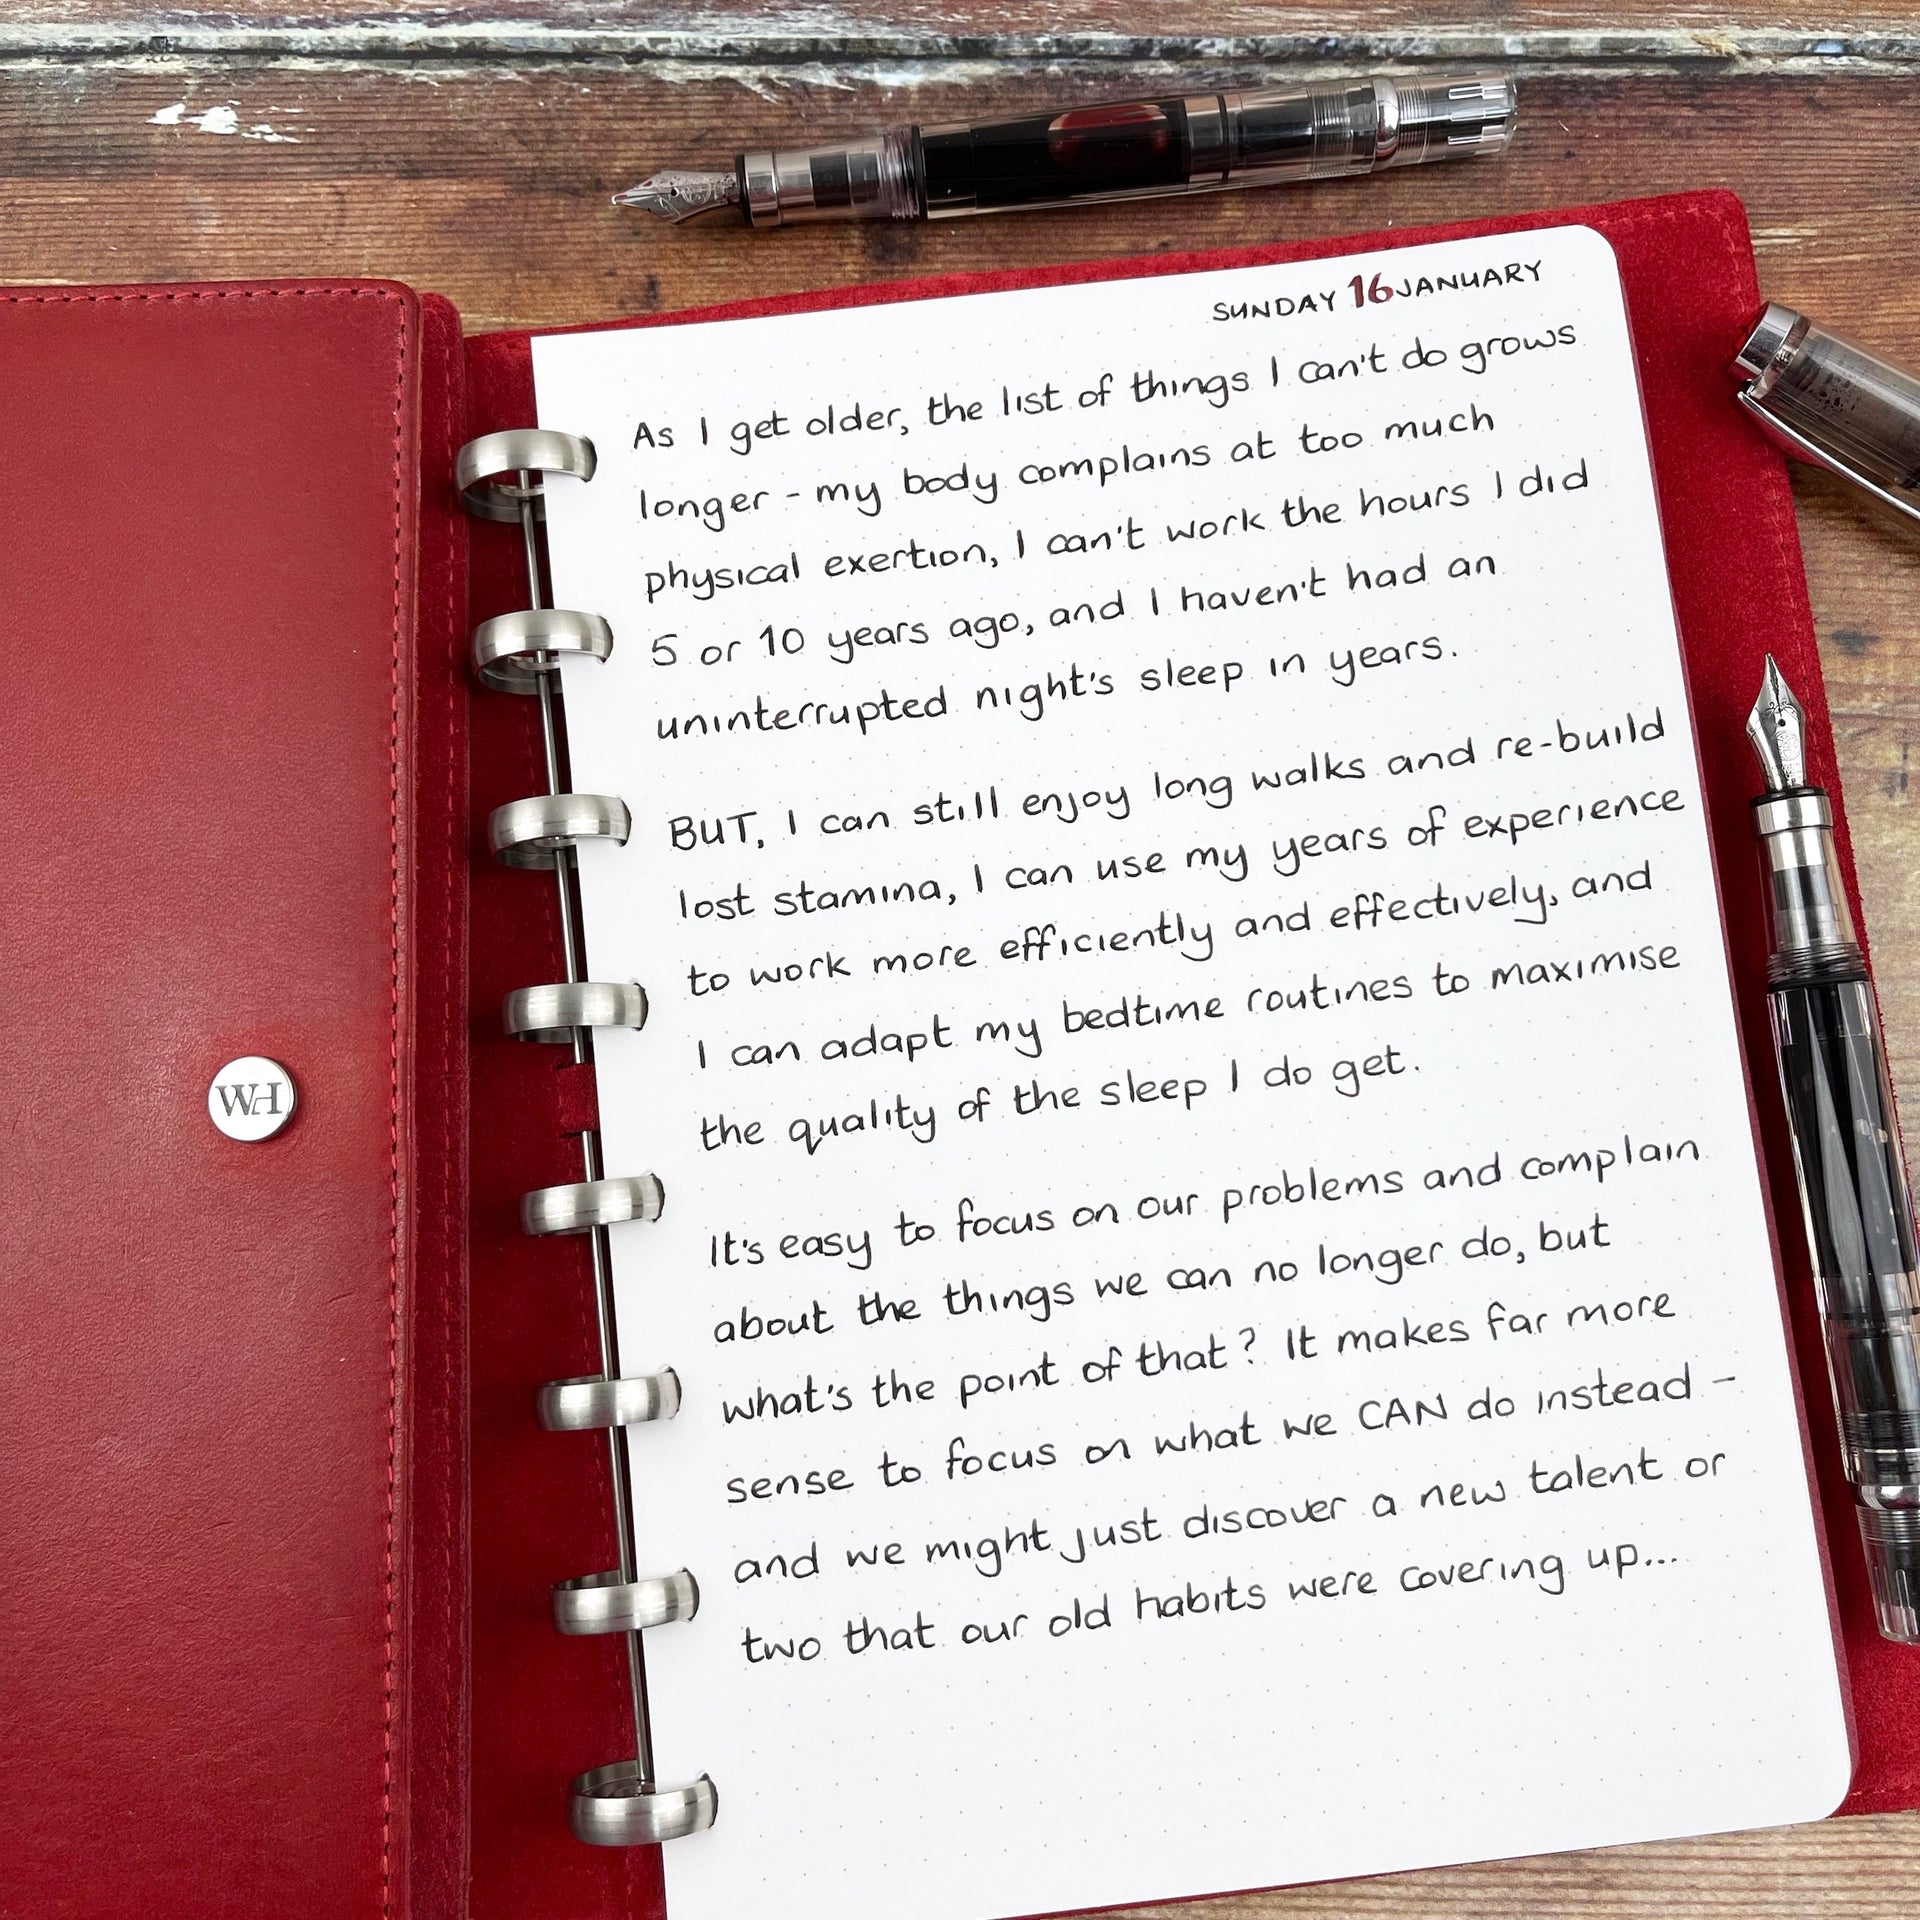 SUNDAY 16 JANUARY
As I get older, the list of things I can't do grows
longer - my body complains at too much
physical exertion, I can't work the hours I did
5 or 10 years ago, and I haven't had an
uninterrupted night's sleep in years.
BUT, I can still enjoy long walks and re-build
lost stamina, I can use my years of experience
to work more efficiently and effectively, and
I can adapt my bedtime routines to maximise
the quality of the sleep I do get.
It's easy to focus on our problems and complain
about the things we can no longer do, but
what's the point of that? It makes far more
sense to focus on what we CAN do instead -
and we might just discover a new talent or
two that our old habits were covering up...
WH